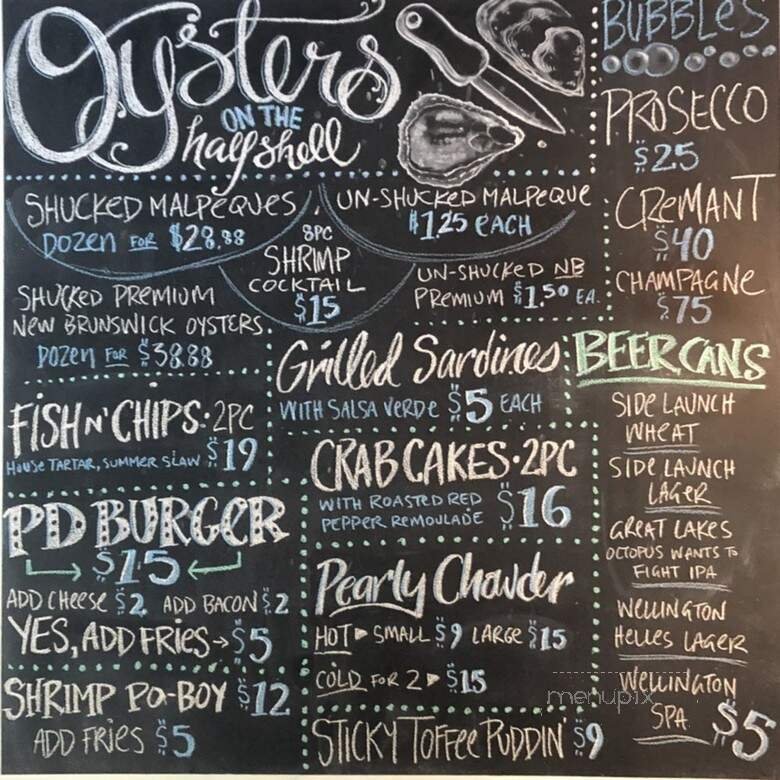 Oysters
ON THE
half shell
SHUCKED MALPEQUES
DOZEN FOR $28.88
UN-SHUCKED MALPEQUE
$1.25 EACH
8PC
SHRIMP
COCKTAIL
$15
SHUCKED PREMIUM
NEW BRUNSWICK OYSTERS.
DOZEN FOR $38.88
UN-SHUCKED NB
PREMIUM $1.50 EA.
Grilled Sardines
WITH SALSA VERDE $5 EACH
FISH N' CHIPS · 2PC
HOUSE TARTAR, SUMMER SLAW $19
CRAB CAKES · 2PC
WITH ROASTED RED
PEPPER REMOULADE $16
PD BURGER
$15
ADD CHEESE $2 ADD BACON $2
YES, ADD FRIES → $5
Pearly Chowder
HOT ▸ SMALL $9 LARGE $15
COLD FOR 2 ▸ $15
SHRIMP PO-BOY $12
ADD FRIES $5
STICKY TOFFEE PUDDIN' $9
BUBBLES
PROSECCO
$25
CREMANT
$40
CHAMPAGNE
$75
BEER CANS
SIDE LAUNCH
WHEAT
SIDE LAUNCH
LAGER
GREAT LAKES
OCTOPUS WANTS TO
FIGHT IPA
WELLINGTON
HELLES LAGER
WELLINGTON
SPA $5
menupix